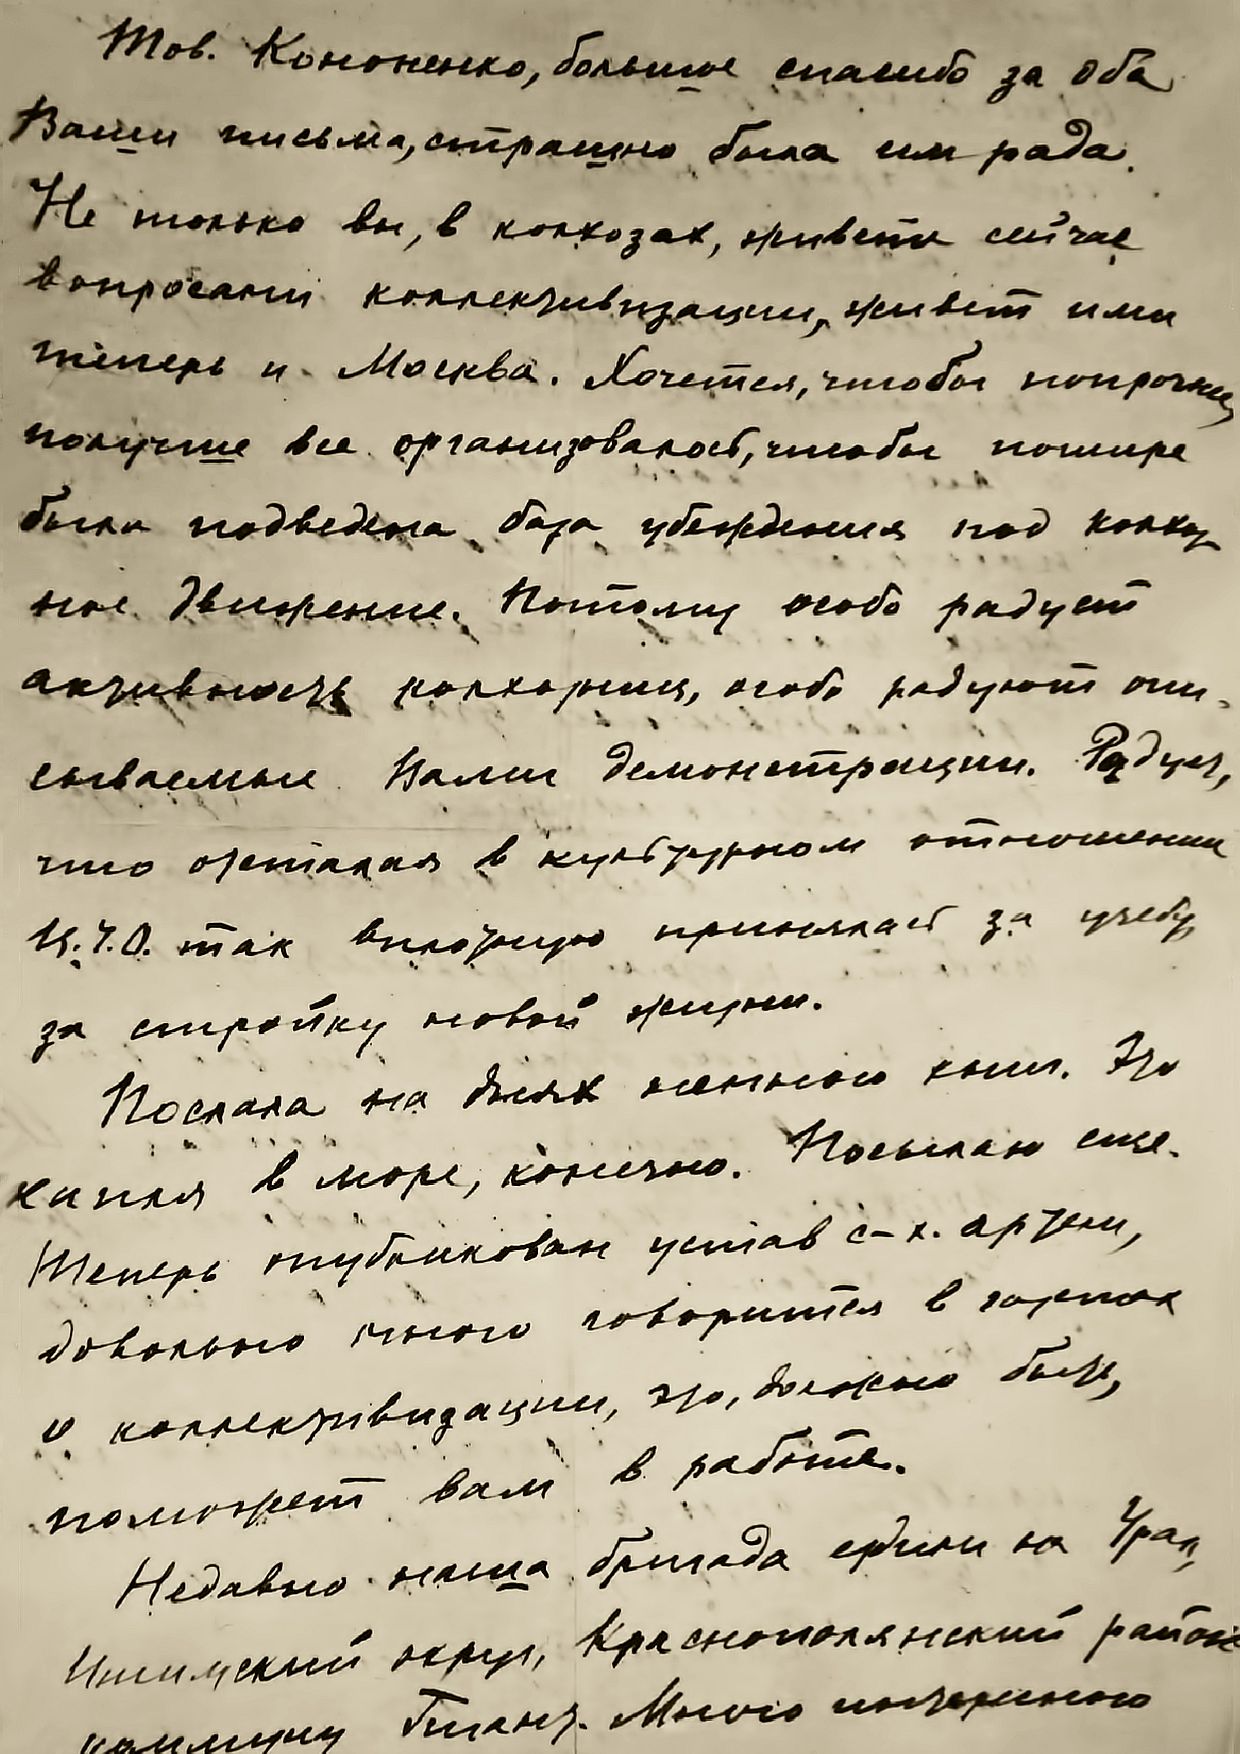 Тов. Кононенко, большое спасибо за оба
Ваши письма, страшно была им рада.
Не только вы, в колхозах, живете сейчас
вопросами коллективизации, живет ими
теперь и Москва. Хочется, чтобы попрочнее,
получше все организовалось, чтобы пошире
была подведена база убеждения под колхоз
ное движение. Потому особо радует
активность колхозниц, особо радуют опи-
сываемые Вами демонстрации. Радует,
что отсталая в культурном отношении
Ц.Ч.О. так вплотную принялась за учебу,
за стройку новой жизни.
Послала на днях немного книг. Это
капля в море, конечно. Посылаю еще.
Теперь опубликован устав с-х. артели,
довольно много говорится в газетах
о коллективизации, это, должно быть,
поможет вам в работе.
Недавно наша бригада ездила на Урал,
Ишимский округ, Краснополянский район
коммуну Гигант. Много интересного